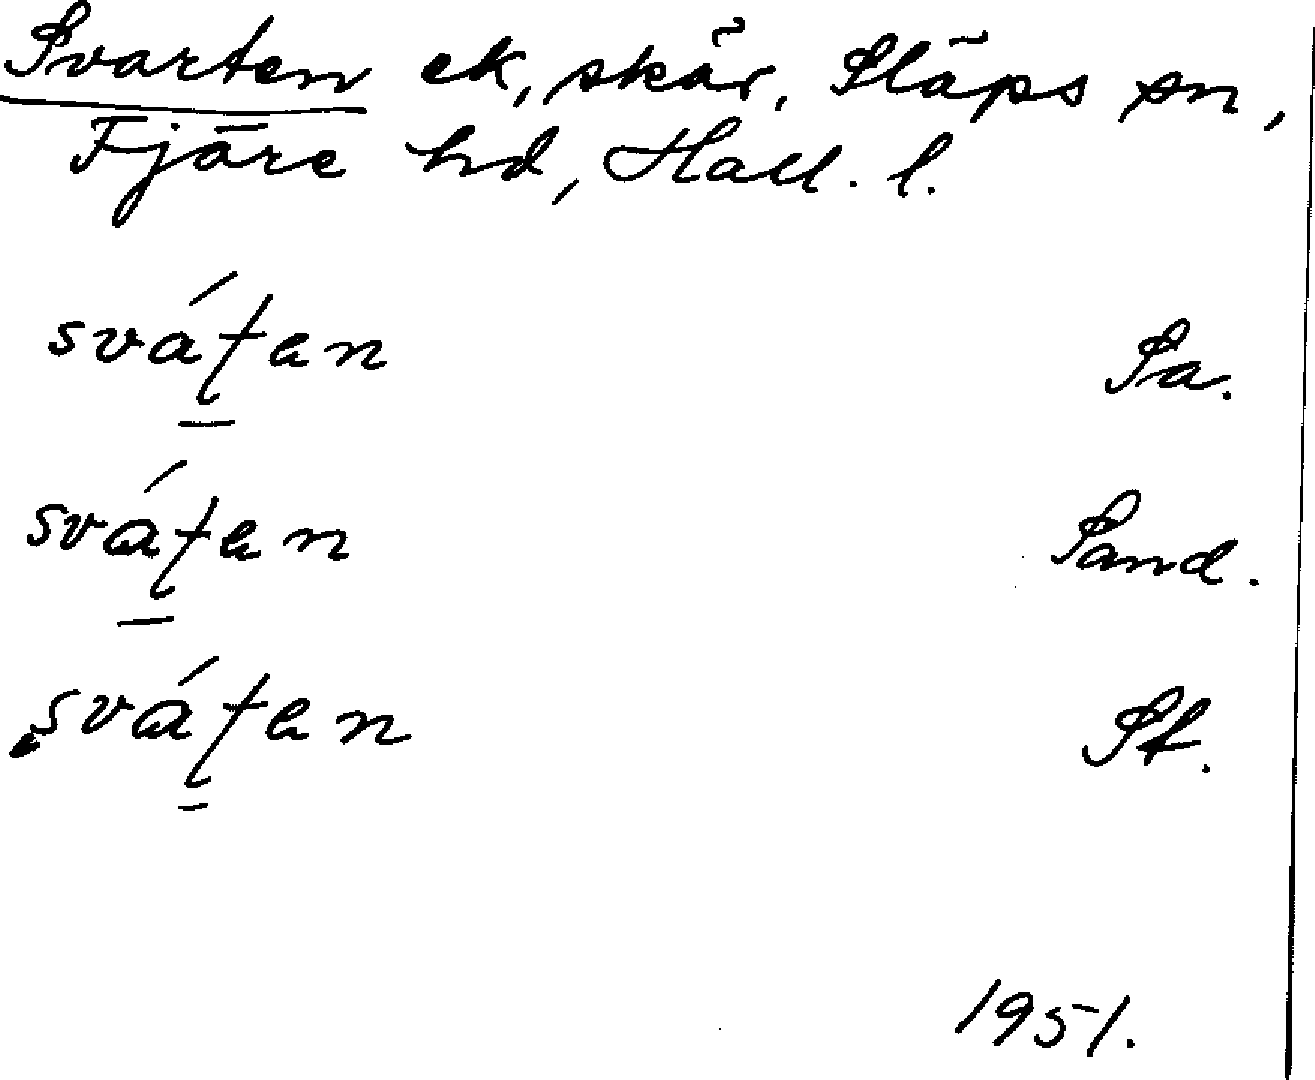 Svarten ek, skär, Släps sn,
Fjäre hd, Hall. l.
sváʈen Sa.
sváʈen Sand.
sváʈen St.
1951.